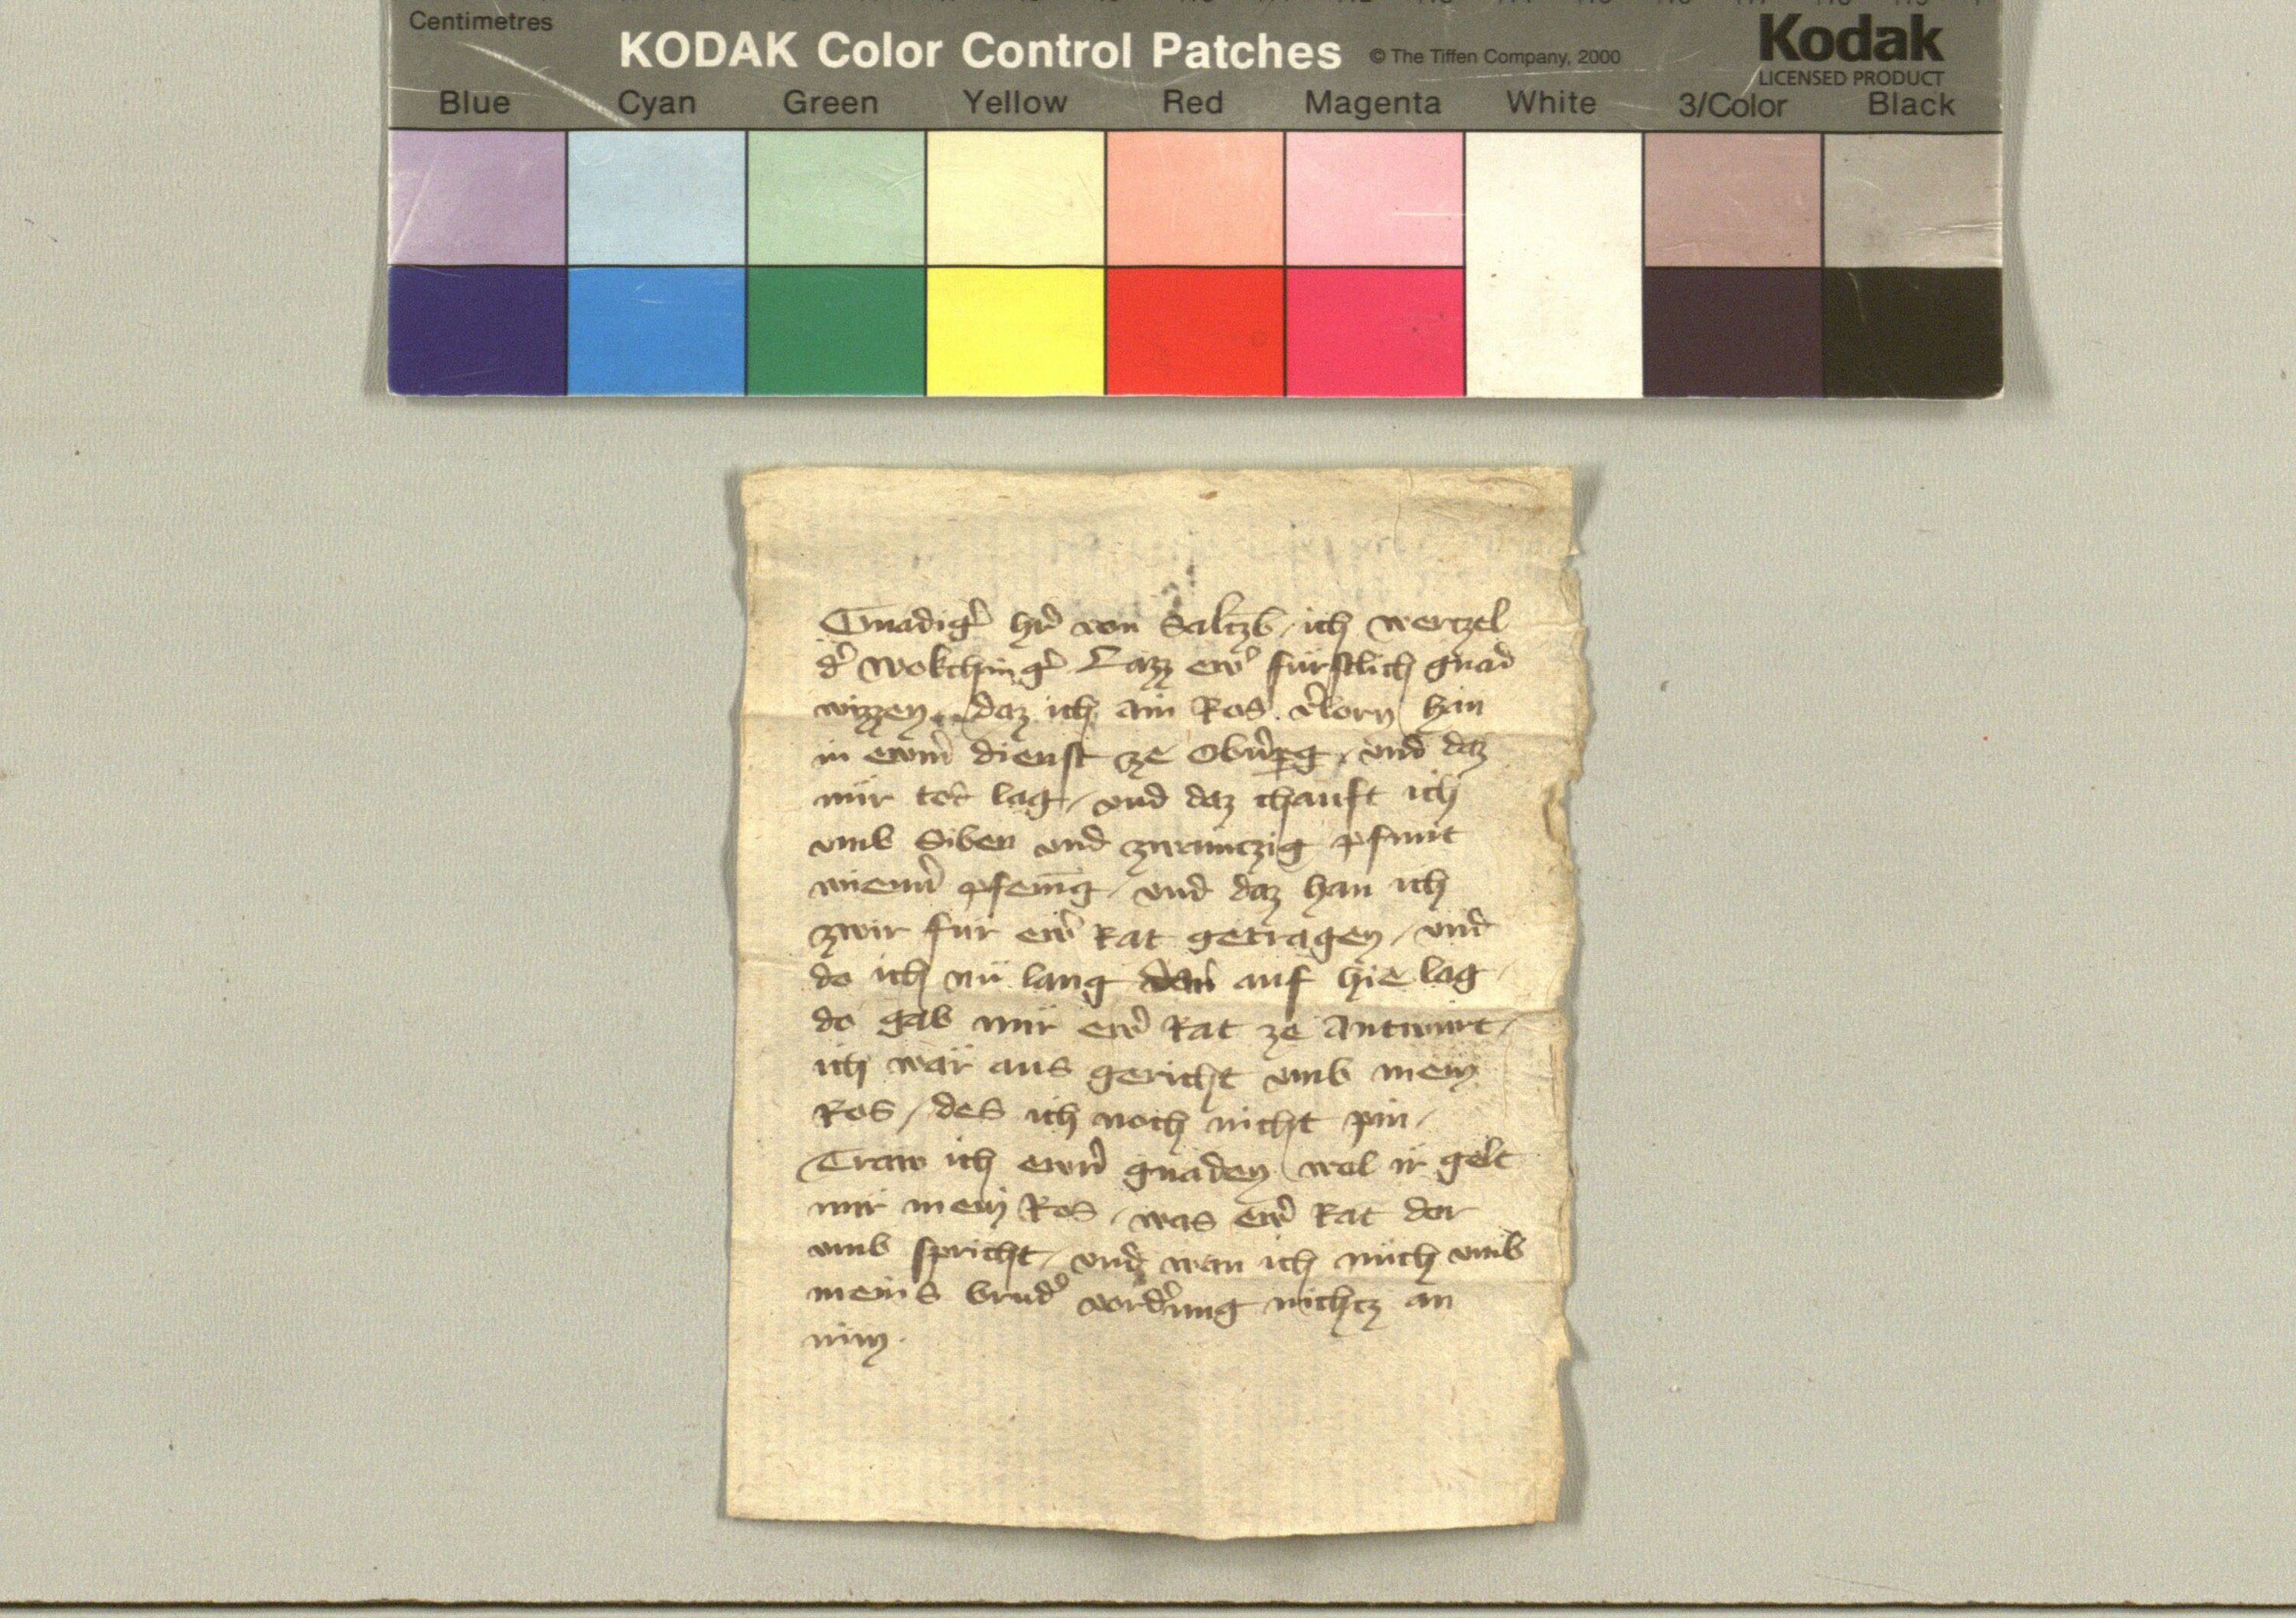 Centimetres
KODAK Color Control Patches © The Tiffen Company, 2000 Kodak
LICENSED PRODUCT
Blue Cyan Green Yellow Red Magenta White 3/Color Black
Gnadig' h'r von Saltzb / ich wertzel
d' wokching' Lazz ew' fürstlich gnad
wizzen daz ich ain Ros v'lorn han
in ewrm dienst ze / und daz
mir tod lag / vnd daz chauft ich
vmb Siben vnd zwaintzig pfunt
wienn' pfenig / vnd daz han ich
zwir für ew' Rat getragen / vnd
do ich nü lang dar auf hie lag /
do gab mir ew' Rat ze Antwurt /
ich wär aus gericht vmb mein
Ros / des ich noch nicht pin /
Traw ich ewrn gnaden wol ir gelt
mir mein Ros / was ew' Rat dar
vmb spricht / vnd wan ich mich vmb
meins brud' vord'ung nichtz an
nim ·